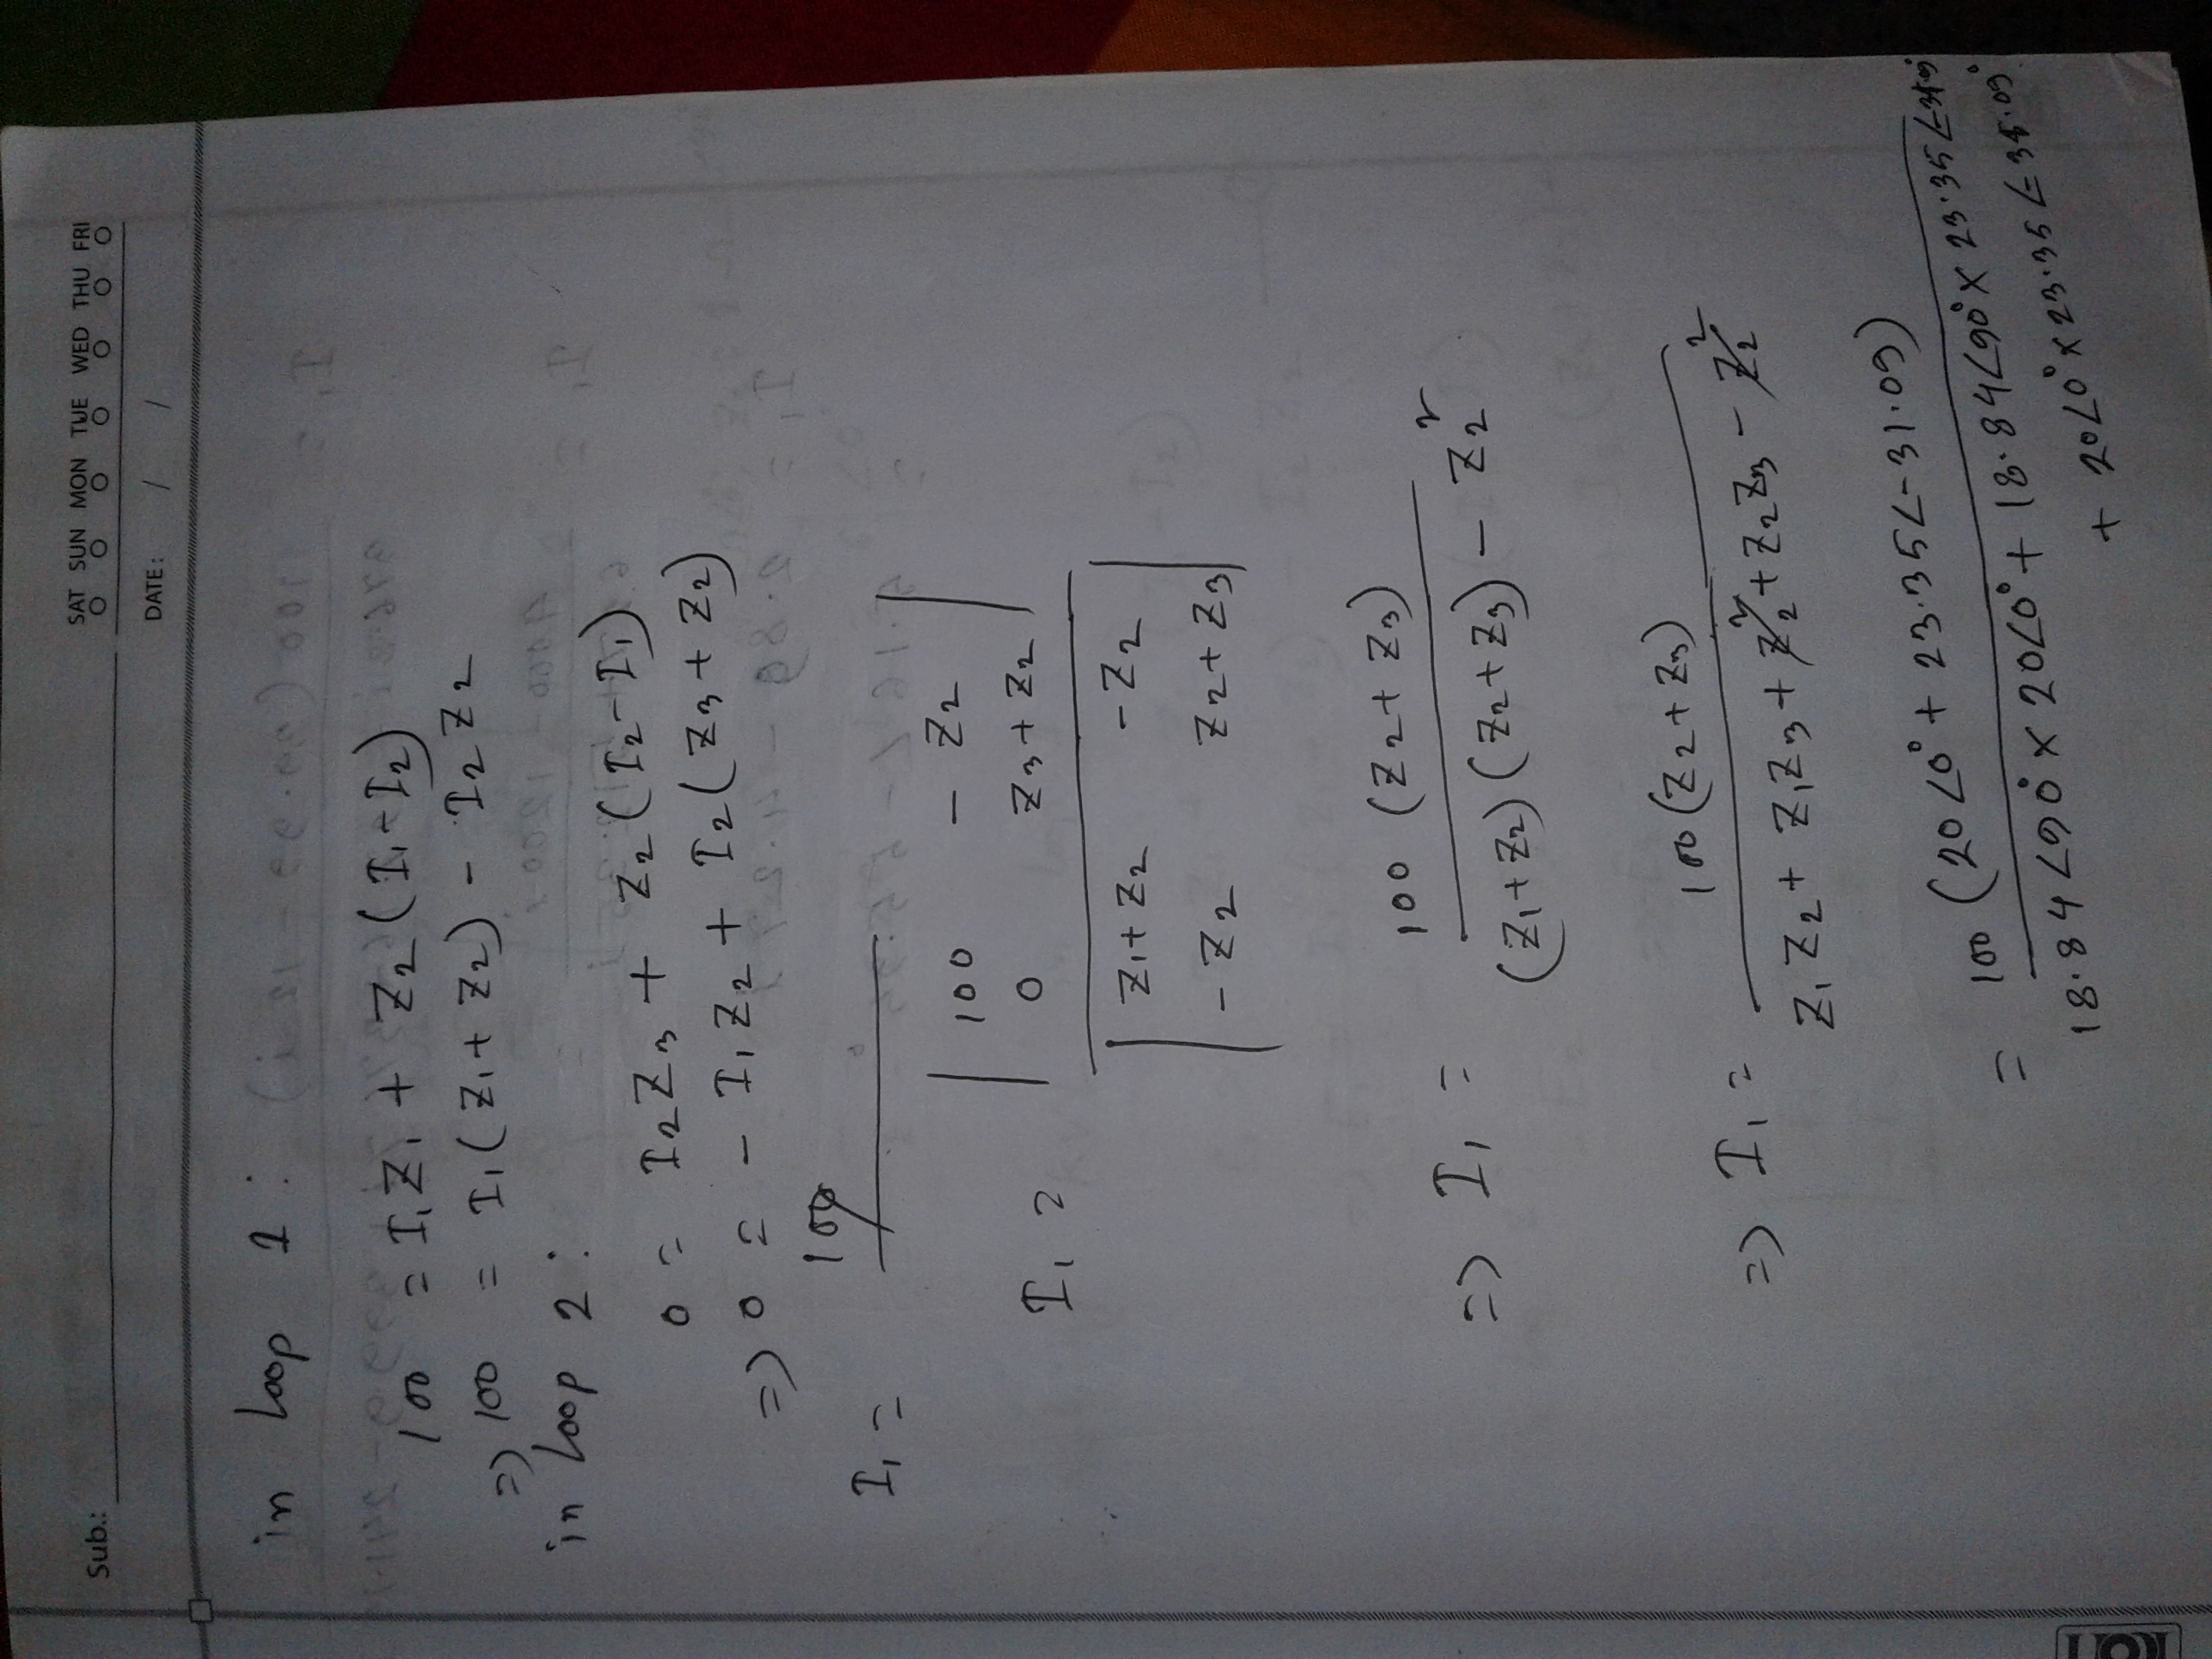 Sub.:
SAT SUN MON TUE WED THU FRI
DATE: / /
in Loop 1:
100 = I₁Z₁ + Z₂(I₁-I₂)
=> 100 = I₁(Z₁+Z₂) - I₂Z₂
in Loop 2:
0 = I₂Z₃ + Z₂(I₂-I₁)
=> 0 = - I₁Z₂ + I₂(Z₃+Z₂)
100
I₁ =
100 - Z₂
I₁ =
0 Z₃+Z₂
Z₁+Z₂ -Z₂
-Z₂ Z₂+Z₃
100 (Z₂+Z₃)
=> I₁ =
(Z₁+Z₂)(Z₂+Z₃) - Z₂²
100(Z₂+Z₃)
=> I₁ =
Z₁Z₂ + Z₁Z₃ + Z₂² + Z₂Z₃ - Z₂²
= 100 (20∠0° + 23.35∠-31.09)
18.84∠90° × 20∠0° + 18.84∠90° × 23.35
+ 20∠0° × 23.35